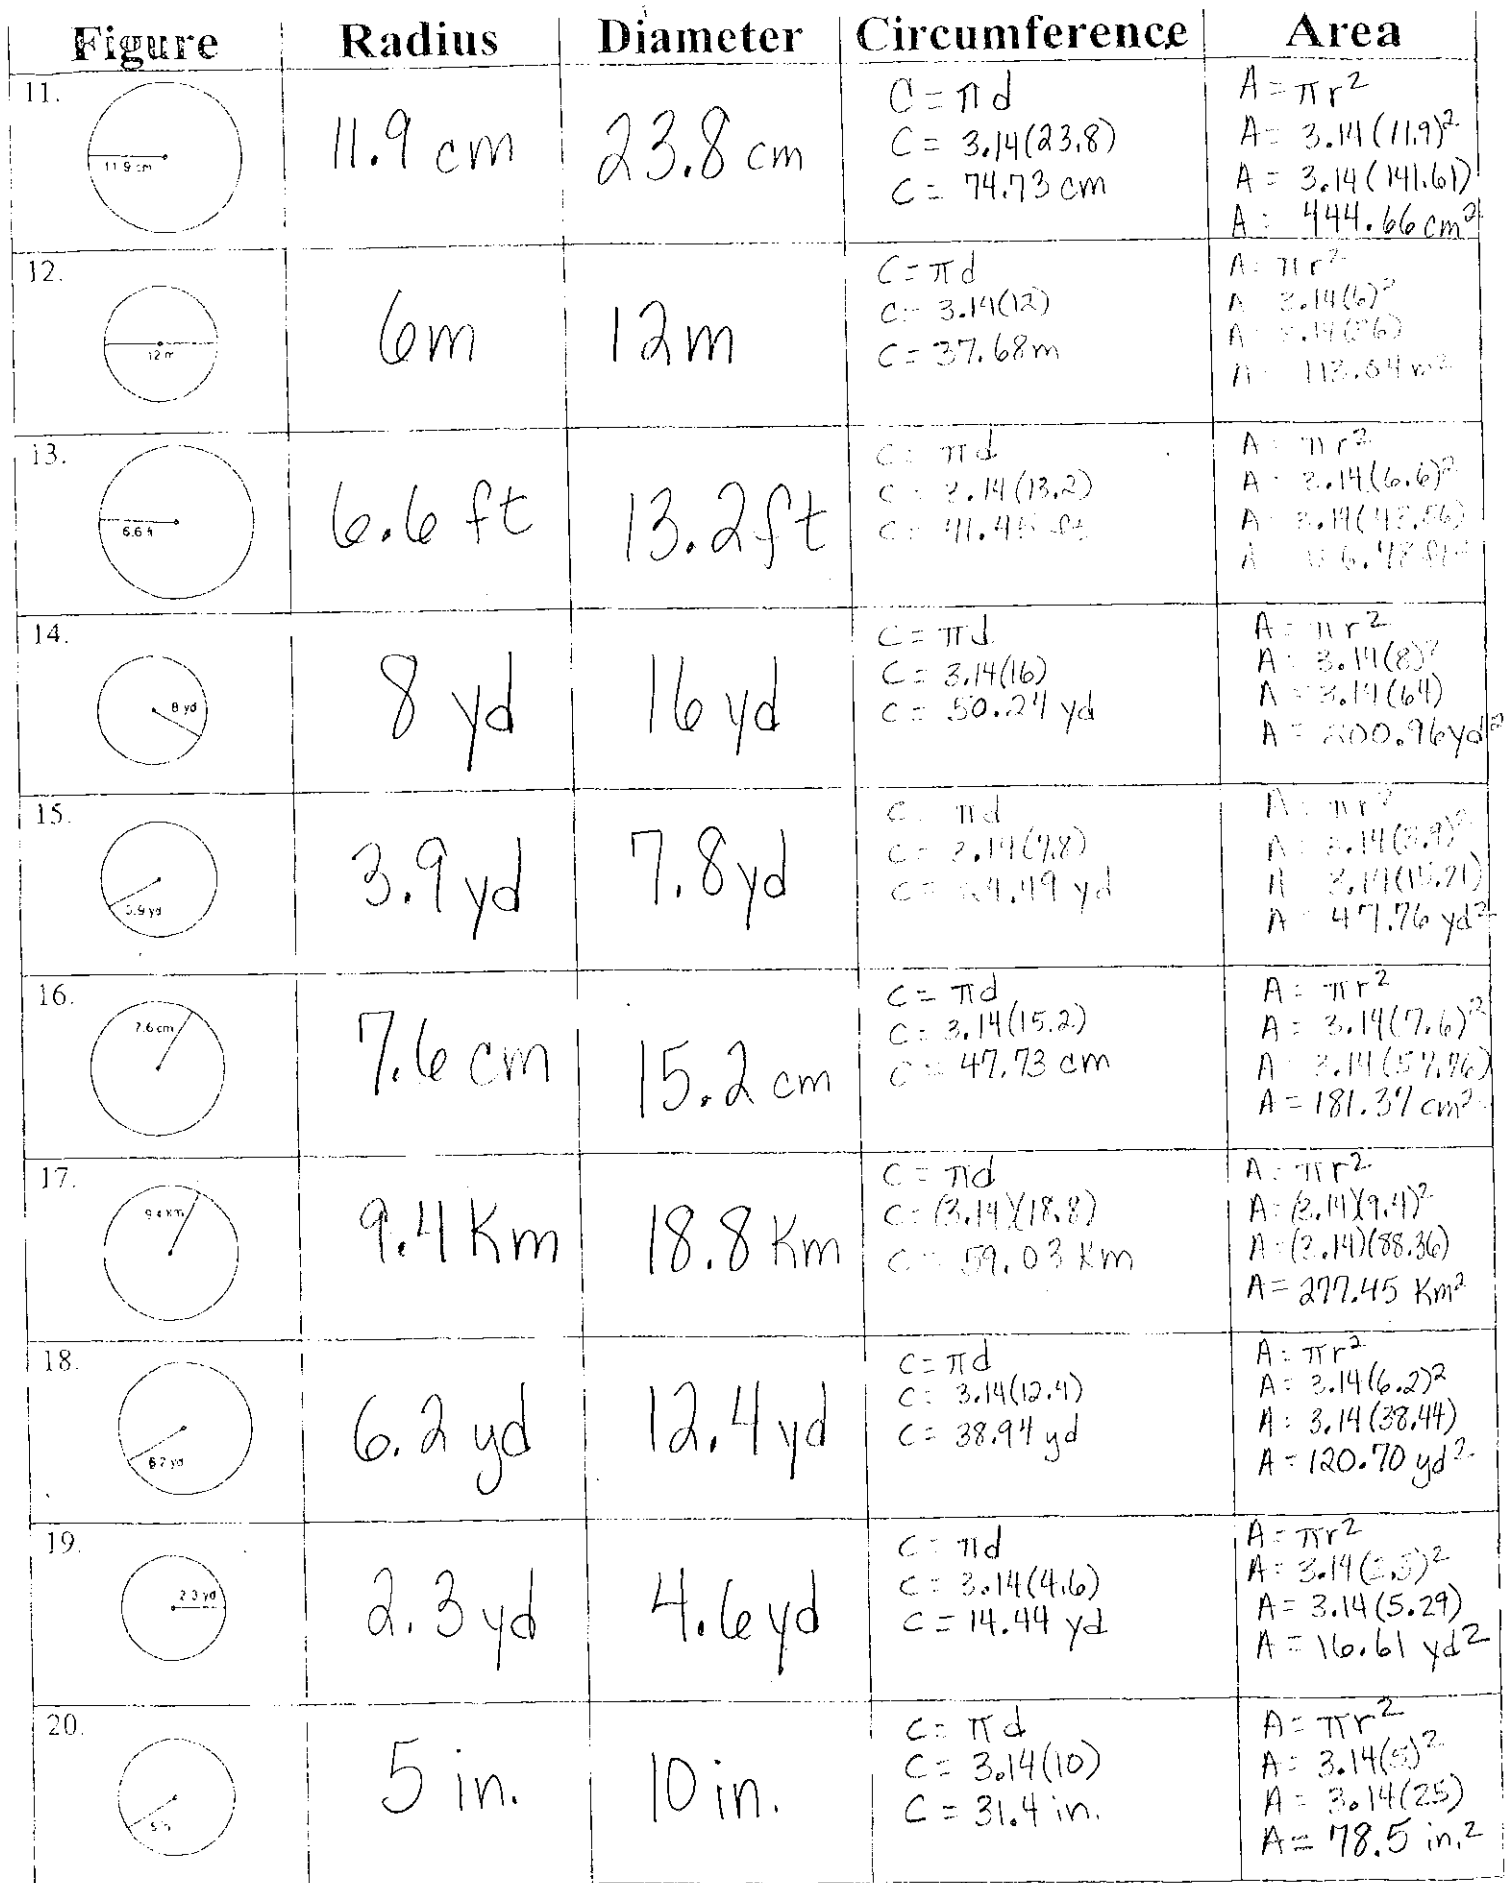 Figure Radius Diameter Circumference Area
11.
11.9 cm
11.9 cm
23.8 cm
C = πd
C = 3.14(23.8)
C = 74.73 cm
A = πr²
A = 3.14(11.9)²
A = 3.14(141.61)
A = 444.66 cm²
12.
12 m
6m
12m
C = πd
C = 3.14(12)
C = 37.68m
A = πr²
A 3.14(6)²
A = 3.14(36)
A = 113.04 m²
13.
6.6 ft
6.6 ft
13.2ft
C = πd
C = 3.14(13.2)
C = 41.45 ft
A = πr²
A = 3.14(6.6)²
A = 3.14(43.56)
A
14.
8 yd
8 yd
16 yd
C = πd
C = 3.14(16)
C = 50.24 yd
A = πr²
A = 3.14(8)²
A = 3.14(64)
A = 200.96yd²
15.
3.9 yd
3.9 yd
7.8yd
C = πd
C = 3.14(7.8)
C = 24.49 yd
A = πr²
A = 3.14(3.9)²
A 3.14(15.21)
A 47.76 yd²
16.
7.6 cm
7.6 cm
15.2 cm
C = πd
C = 3.14(15.2)
C = 47.73 cm
A = πr²
A = 3.14(7.6)²
A = 3.14(57.76)
A = 181.37 cm²
17.
9.4 Km
9.4 Km
18.8 Km
C = πd
C = (3.14)(18.8)
C = 59.03 Km
A = πr²
A = (3.14)(9.4)²
A = (3.14)(88.36)
A = 277.45 Km²
18.
6.2 yd
6.2 yd
12.4 yd
C = πd
C = 3.14(12.4)
C = 38.94 yd
A = πr²
A = 3.14(6.2)²
A = 3.14(38.44)
A = 120.70 yd²
19.
2.3 yd
2.3 yd
4.6yd
C = πd
C = 3.14(4.6)
C = 14.44 yd
A = πr²
A = 3.14
A = 3.14(5.29)
A = 16.61 yd²
20.
5 in.
10 in.
C = πd
C = 3.14(10)
C = 31.4 in.
A = πr²
A = 3.14(5)²
A = 3.14(25)
A = 78.5 in.²